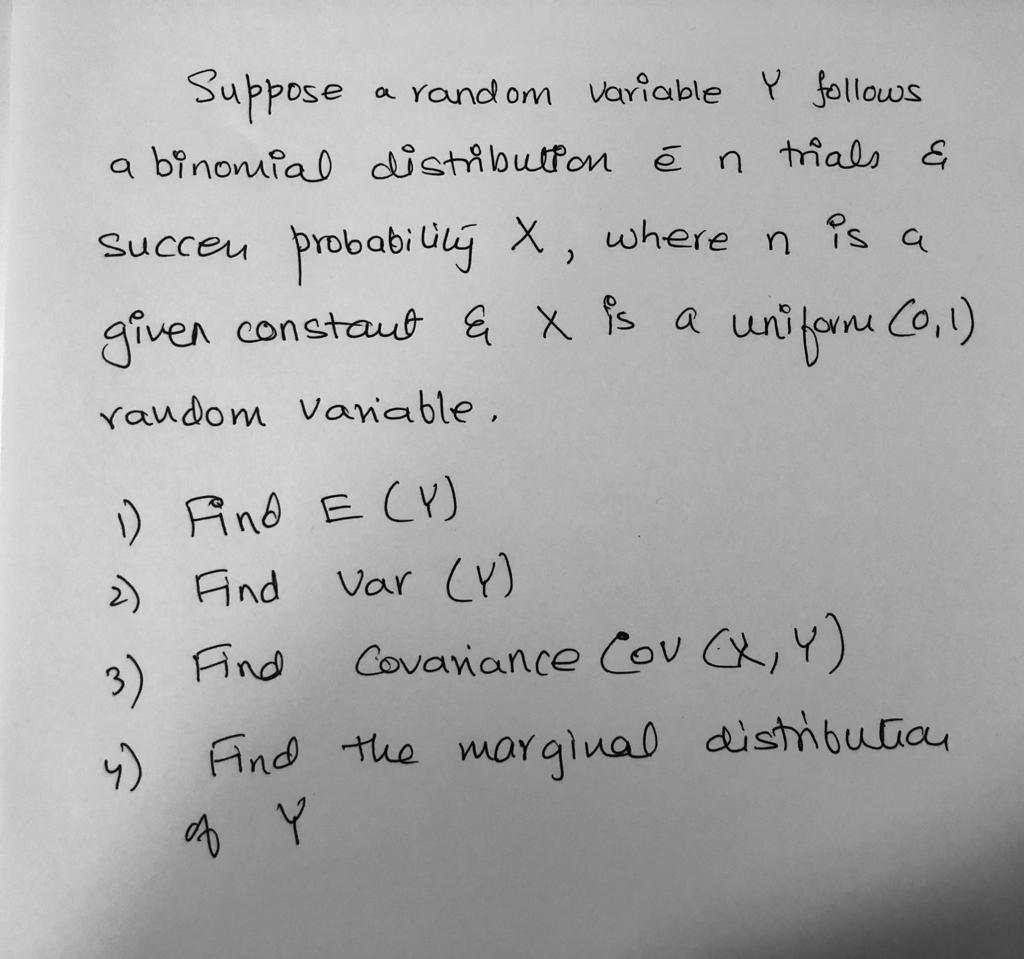 Suppose a random variable Y follows
a binomial distribution c̄ n trials &
success probability X, where n is a
given constant & X is a uniform (0,1)
random variable.
1) Find E (Y)
2) Find Var (Y)
3) Find Covariance Cov (X, Y)
4) Find the marginal distribution
of Y